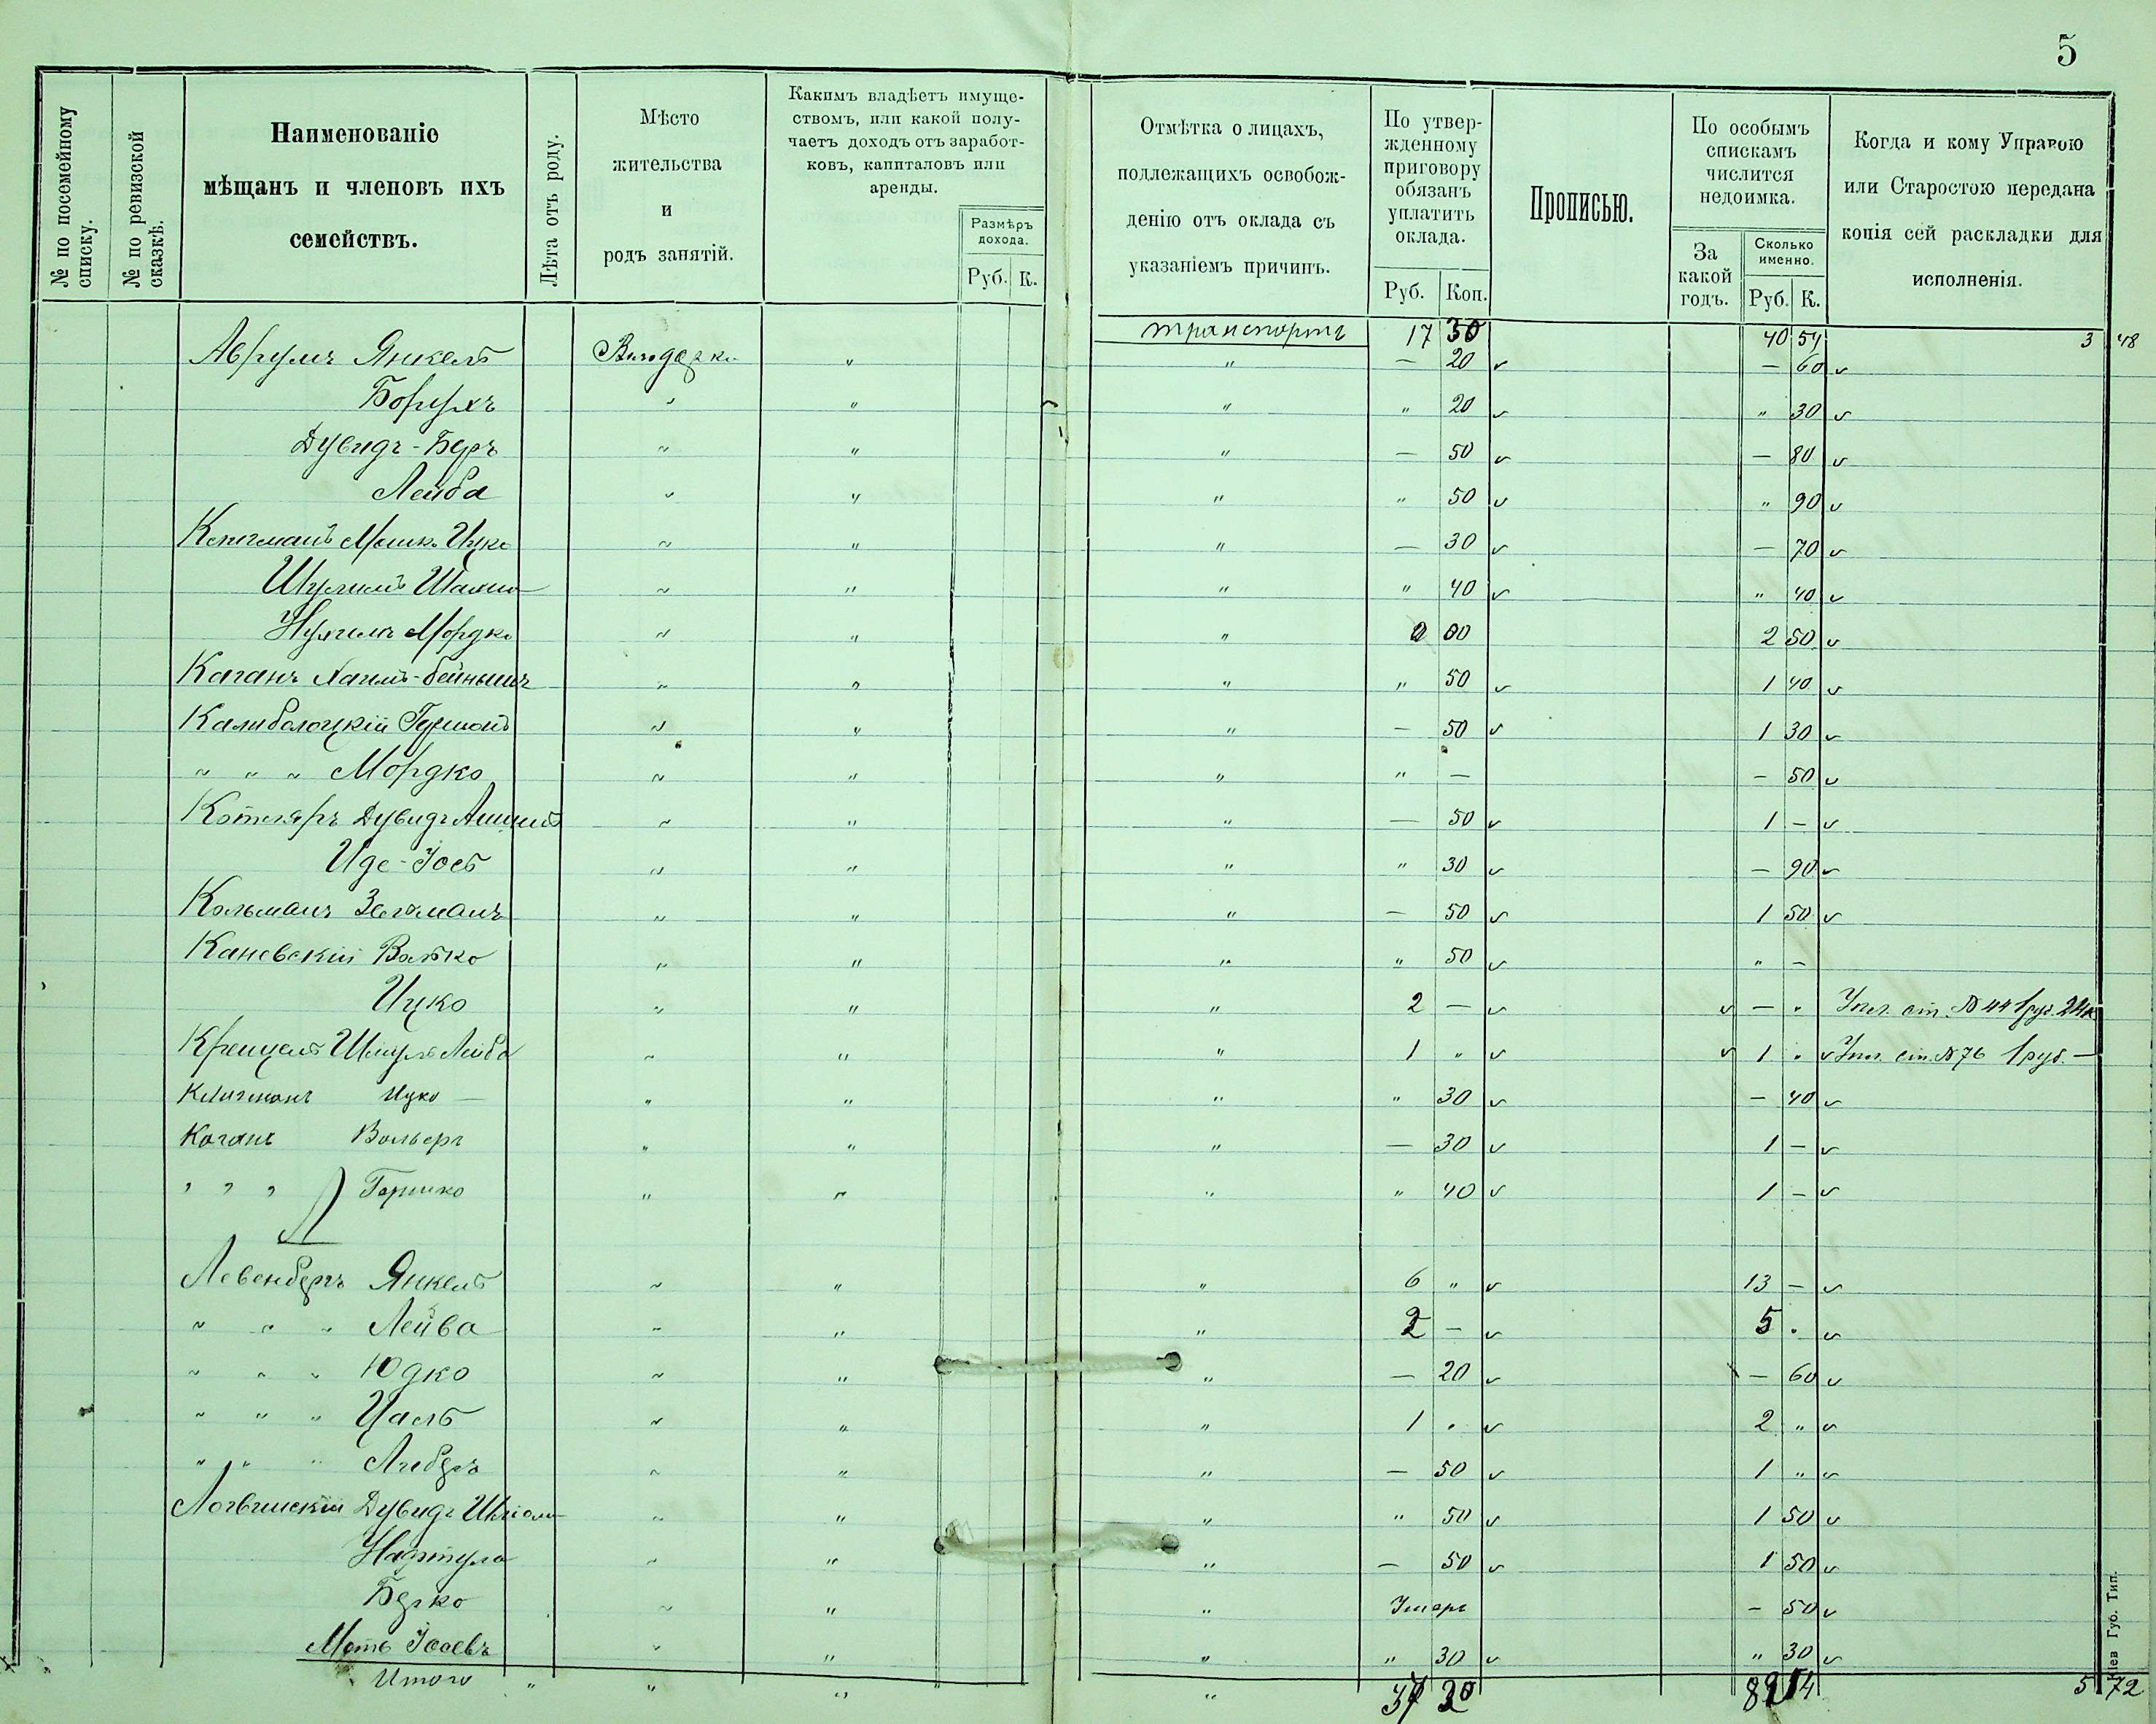 5
№ по посемейному списку.
№ по ревизской сказкѣ.
Наименованіе
мѣщанъ и членовъ ихъ
семействъ.
Лѣта отъ роду.
Мѣсто
жительства
и
родъ занятій.
Какимъ владѣетъ имуще-
ствомъ, или какой полу-
чаетъ доходъ отъ заработ-
ковъ, капиталовъ или
аренды.
Размѣръ
дохода.
Руб. К.
Отмѣтка о лицахъ,
подлежащихъ освобож-
денію отъ оклада съ
указаніемъ причинъ.
По утвер-
жденному
приговору
обязанъ
уплатить
оклада.
Руб. Коп.
Прописью.
По особымъ
спискамъ
числится
недоимка.
За
какой
годъ.
Сколько
именно.
Руб. К.
Когда и кому Управою
или Старостою передана
копія сей раскладки для
исполненія.
транспортъ 17 30 40 54 3 48
Аврумъ Янкель " " — 20 v — 60 v
Борухъ " " " " 20 v " 30 v
Дувидъ-Беръ " " " — 50 v — 80 v
Лейба " " " " 50 v " 90 v
Мошко Ицко " " " — 30 v — 70 v
" " " " 40 v " 40 v
Мордко " " " 00 2 50 v
Каганъ Хаимъ-бейнышъ " " " " 50 v 1 40 v
Калиболоцкій Гершонъ " " " — 50 v 1 30 v
" " " Мордко " " " " — — 50 v
Котляръ Дувидъ " " " — 50 v 1 — v
Иде-Іось " " " " 30 v — 90 v
Кольманъ Зельманъ " " " — 50 v 1 50 v
Каневскій Волько " " " " 50 v " —
Ицко " " " 2 — v v — " Упл. ст. № 44 1 руб. 24к
Шмуль Лейба " " " 1 " v v 1 " v Упл. ст. № 76 1 руб. —
Клигманъ Ицко — " " " " 30 v — 40 v
Каганъ Вольфъ " " " — 30 v 1 — v
" " " Гершко " " " " 40 v 1 — v
Л
Левенбергъ Янкель " " " 6 " v 13 — v
" " " Лейба " " " 2 — v 5 " v
" " " Юдко " " " — 20 v — 60 v
" " " " " " 1 " v 2 " v
" " " Либеръ " " " — 50 v 1 " v
Логвинскій Дувидъ " " " " 50 v 1 50 v
Нафтула " " " — 50 v 1 50 v
Берко " " " Умеръ — 50 v
" " " " 30 v " 30 v
Итого " " " " 37 30 5 72
Кіев Губ. Тип.